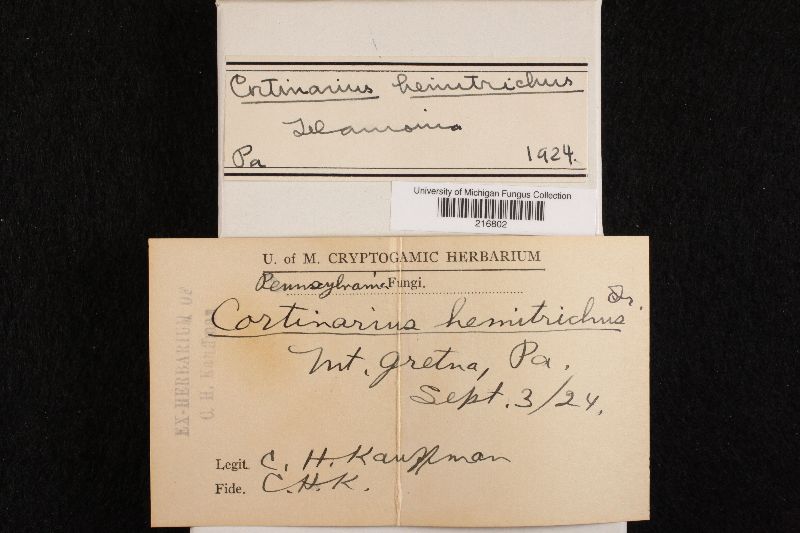 Cortinarius hemitrichus
Telamonia
Pa 1924.
University of Michigan Fungus Collection
216802
U. of M. CRYPTOGAMIC HERBARIUM
Pennsylvania Fungi.
Cortinarius hemitrichus Fr.
Mt. Gretna, Pa.
Sept. 3/24.
Legit. C. H. Kauffman
Fide. C.H.K.
EX-HERBARIUM OF
C. H. Kauffman